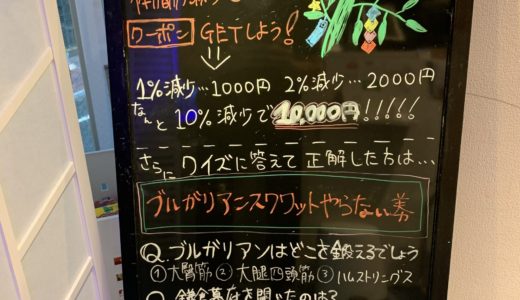 クーポン GETしよう!
1%減少…1000円 2%減少…2000円
なんと 10%減少で 10,000円!!!!!
さらに クイズに答えて 正解した方は…
ブルガリアンスクワットやらない券
Q.ブルガリアンはどこを鍛えるでしょう
①大臀筋 ②大腿四頭筋 ③ハムストリングス
Q.鎌倉幕府を開いたのは?